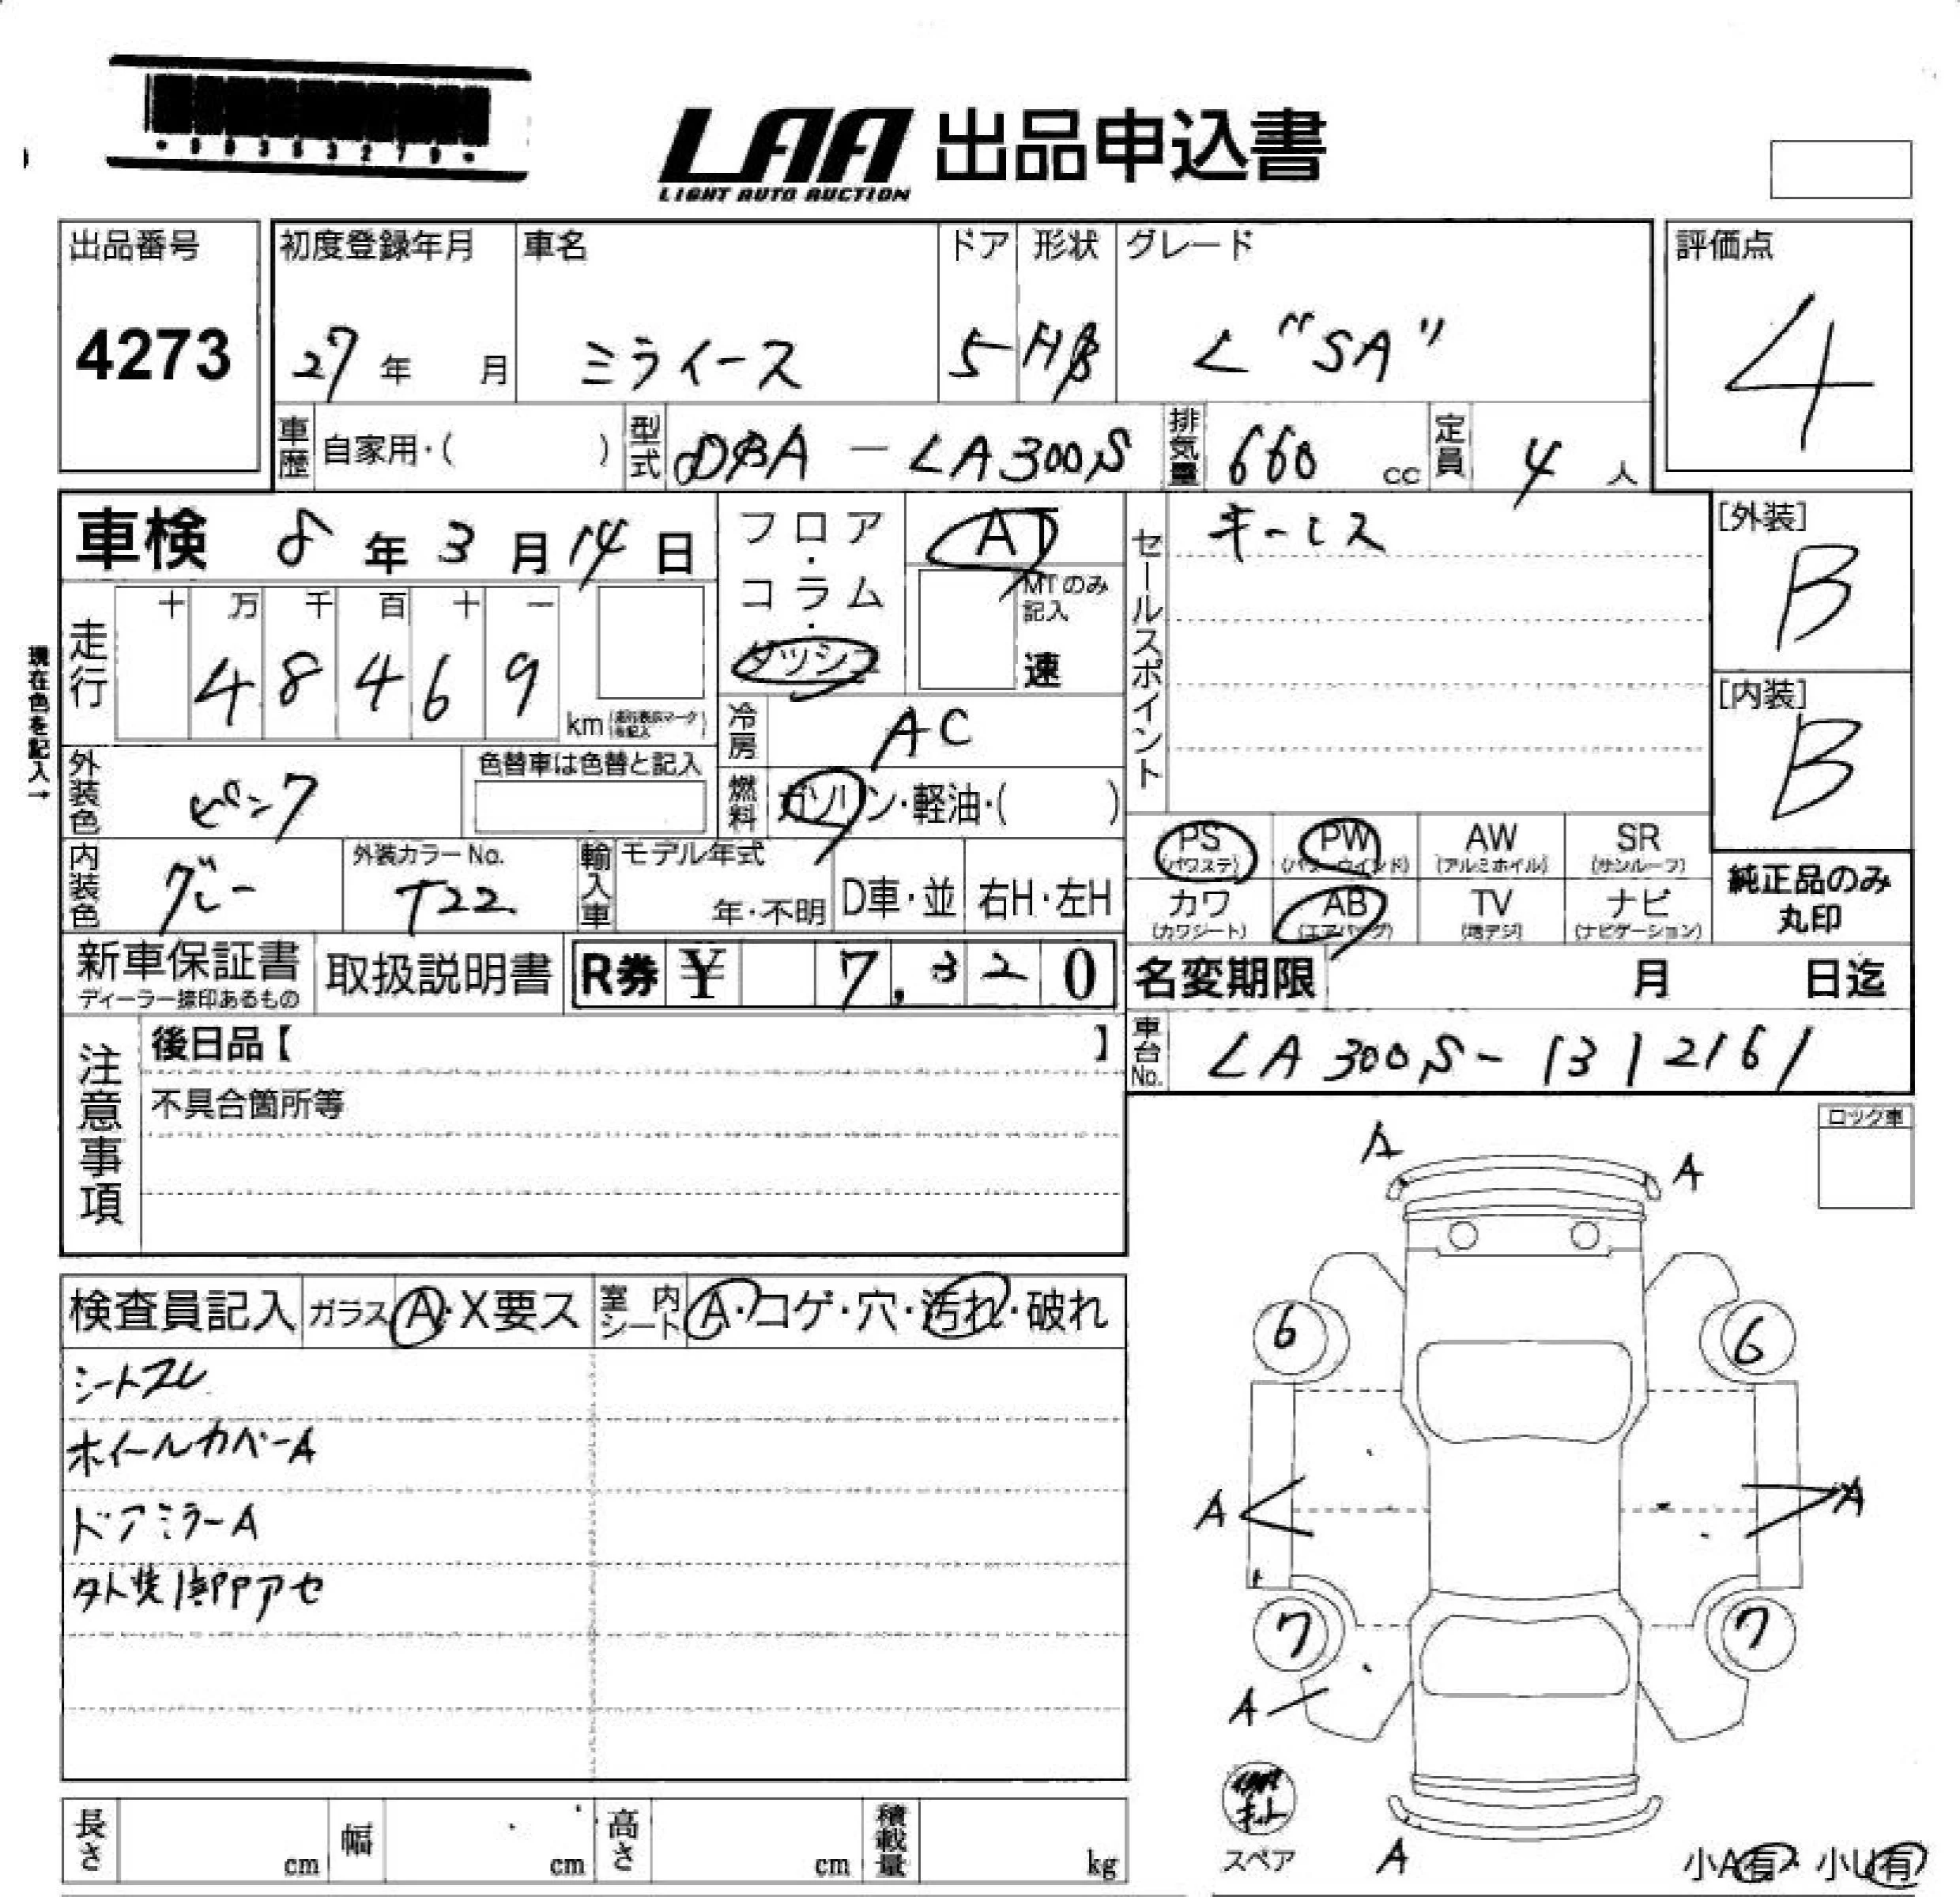 LAA 出品申込書
LIGHT AUTO AUCTION
出品番号 初度登録年月 車名 ドア 形状 グレード 評価点
4273 27年 月 ミライース 5 HB L "SA" 4
車歴 自家用・( ) 型式 DBA-LA300S 排気量 660 cc 定員 4 人
車検 8年3月14日 フロア・コラム・ダッシュ AT セールスポイント キーレス [外装]
B
MTのみ記入 速
現在色を記入→
走行 十 万 千 百 十 一
4 8 4 6 9 km
[内装]
B
冷房 AC
外装色 ピンク 色替車は色替と記入 燃料 ガソリン・軽油・( )
PS (パワステ) PW (パワーウインド) AW (アルミホイル) SR (サンルーフ)
内装色 グレー 外装カラーNo. T22 輸入車 モデル年式 年・不明 D車・並 右H・左H
カワ (カワシート) AB (エアバッグ) TV (地デジ) ナビ (ナビゲーション)
純正品のみ
丸印
新車保証書 取扱説明書 R券 ¥ 7,320 名変期限 月 日迄
ディーラー捺印あるもの
車台No. LA300S-1312161
注意事項 後日品【 】
不具合箇所等
ロック車
A A
検査員記入 ガラス A・X要ス 室内シート A・コゲ・穴・汚れ・破れ
シートスレ
ホイールカバーA
ドアミラーA
外装
6 6
A A
7 7
A
キット
スペア A 小A有・小U有
長さ cm 幅 cm 高さ cm 積載量 kg